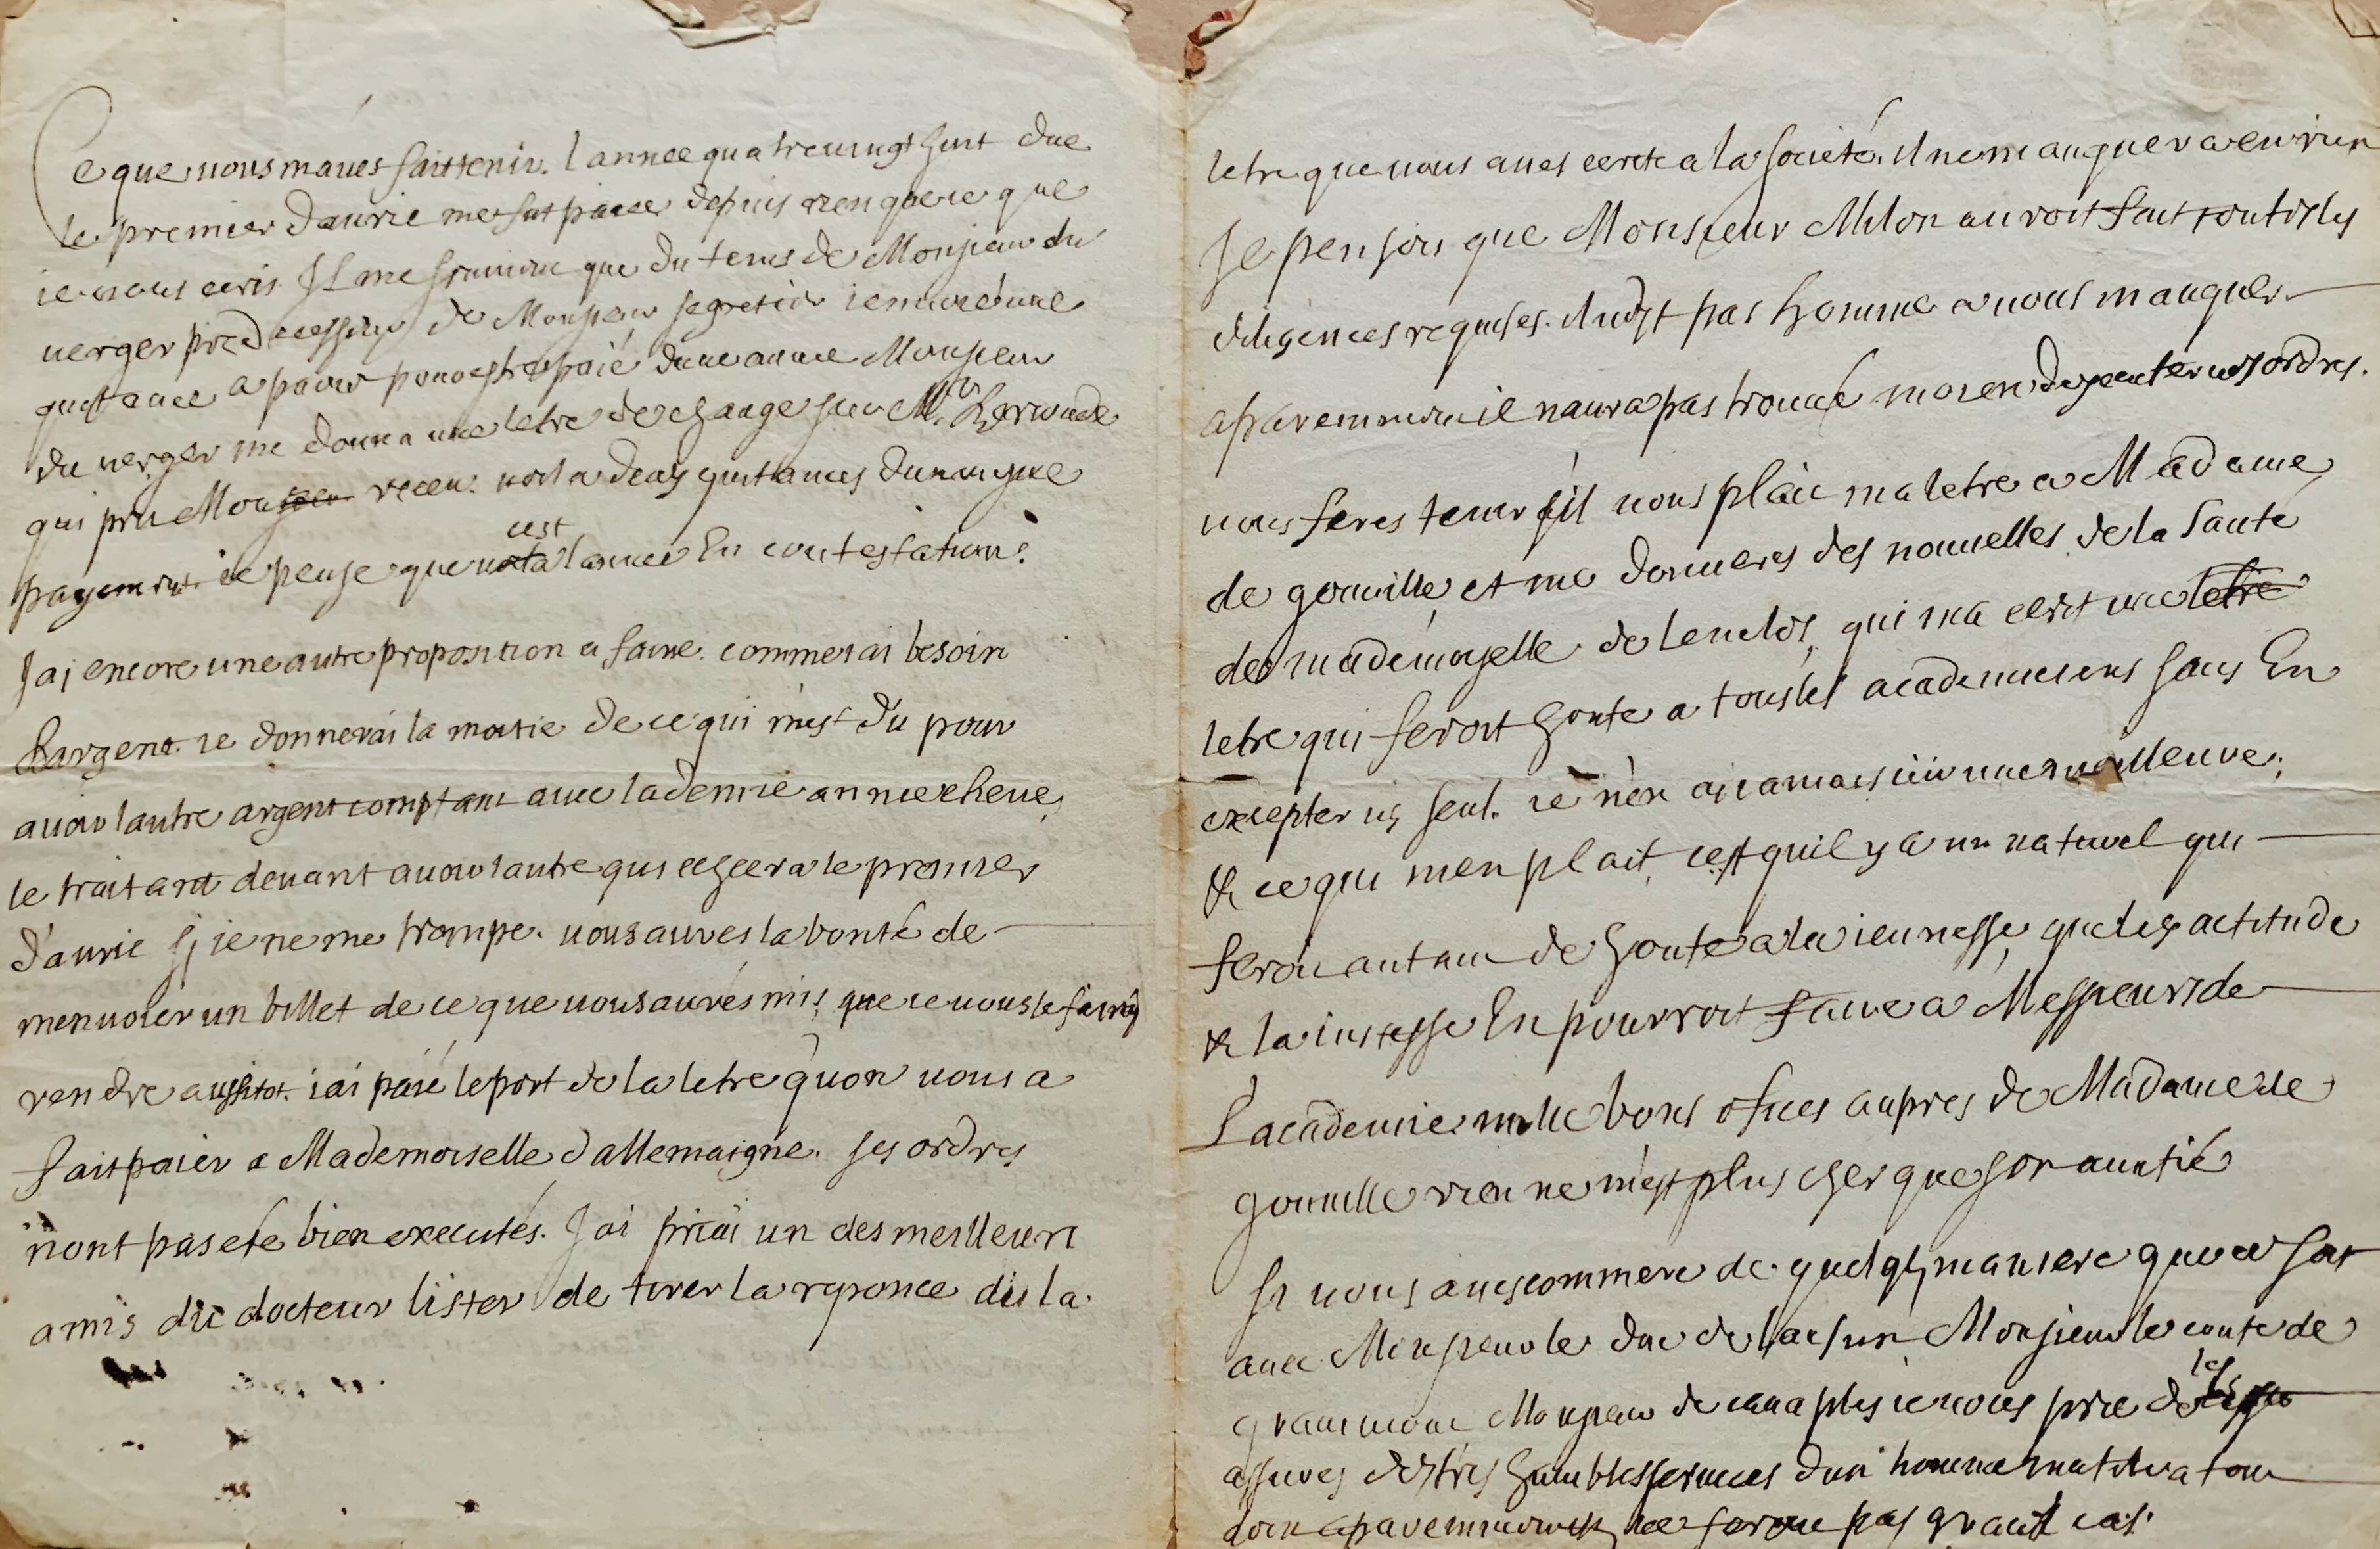 Ce que vous m'aués fait tenir. l'année quatreuingt huit due
le premier d'auril me fut paiee depuis rien guere que
ie uous ecris Il me souuient que du tems de Monsieur du
uerger predecesseur de Monsieur segretier i'enuoié une
quitance a pour estre paié d'une année Monsieur
du uerger me donna une letre de change sur Mr.
qui prit Monsieur receu. uoila deux quitances d'un mesme
payement. ie pense que c'est la l'année En contestation.
J'ai encore une autre proposition a faire. comme i'ai besoin
d'argent. ie donnerai la moitié de ce qui m'est dû pour
auoir l'autre argent comptant auec la demie année
le traitant deuant auoir l'autre qui echeera le premier
d'auril si ie ne me trompe. uous aurés la bonté de
m'enuoier un billet de ce que uous aurés mis, que ie uous le ferai
rendre aussitot. i'ai paié le port de la letre qu'on uous a
fait paier a Mademoiselle d'allemaigne. ses ordres
n'ont pas eté bien executés. J'ai priai un des meilleurs
amis du docteur lister de tirer la reponce du la
letre que uous aués ecrite a la societé. il ne manquera en rien
Je pensois que Monsieur Milon auroit fait toutes les
diligences requises. il n'est pas homme a uous manquer
aparemment il n'aura pas trouué moien d'executer uos ordres.
uous ferés tenir s'il uous plait ma letre a Madame
de gouuille et me donnerés des nouuelles de la santé
de mademoyselle de lenclos, qui m'a ecrit une letre
letre qui feroit honte a tous les academiciens sans En
excepter un seul. ie n'en ai iamais uû une meilleure;
& ce qui m'en plait, c'est qu'il y a un naturel qui
feroit autant de honte a la ieunesse, que l'exactitude
& la iustesse En pourroit faire a Messieurs de
L'academie. mille bons ofices aupres de Madame de
gouuille rien ne m'est plus cher que son amitié
Si uous aues commerce de quelque maniere que ce soit
auec Monsieur le duc de lausun Monsieur le conte de
grammont Monsieur de canaples ie uous prie de les
assurer des tres humbles seruices d'un homme inutile a tout
dont aparemment ils ne feront pas grand cas.